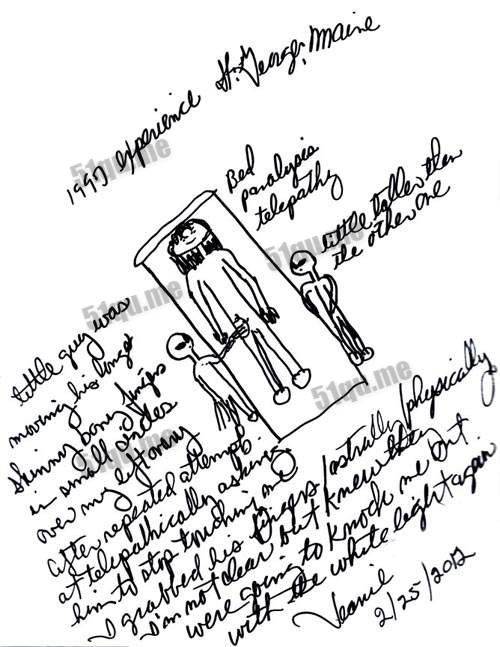 1997 experience St. George, Maine
Bed
paralysis
telepathy
little taller then
the other one
little guy was
moving his long
skinny bony fingers
in small circles
over my left ovary
after repeated attempts
at telepathically asking
him to stop touching me
I grabbed his fingers/astrally/physically
I'm not clear but knew they
were going to knock me out
with the white light again
Jeanie
2/25/2012
51qu.me
51qu.me
51qu.me
51qu.me
51qu.me
51qu.me
51qu.me
51qu.me